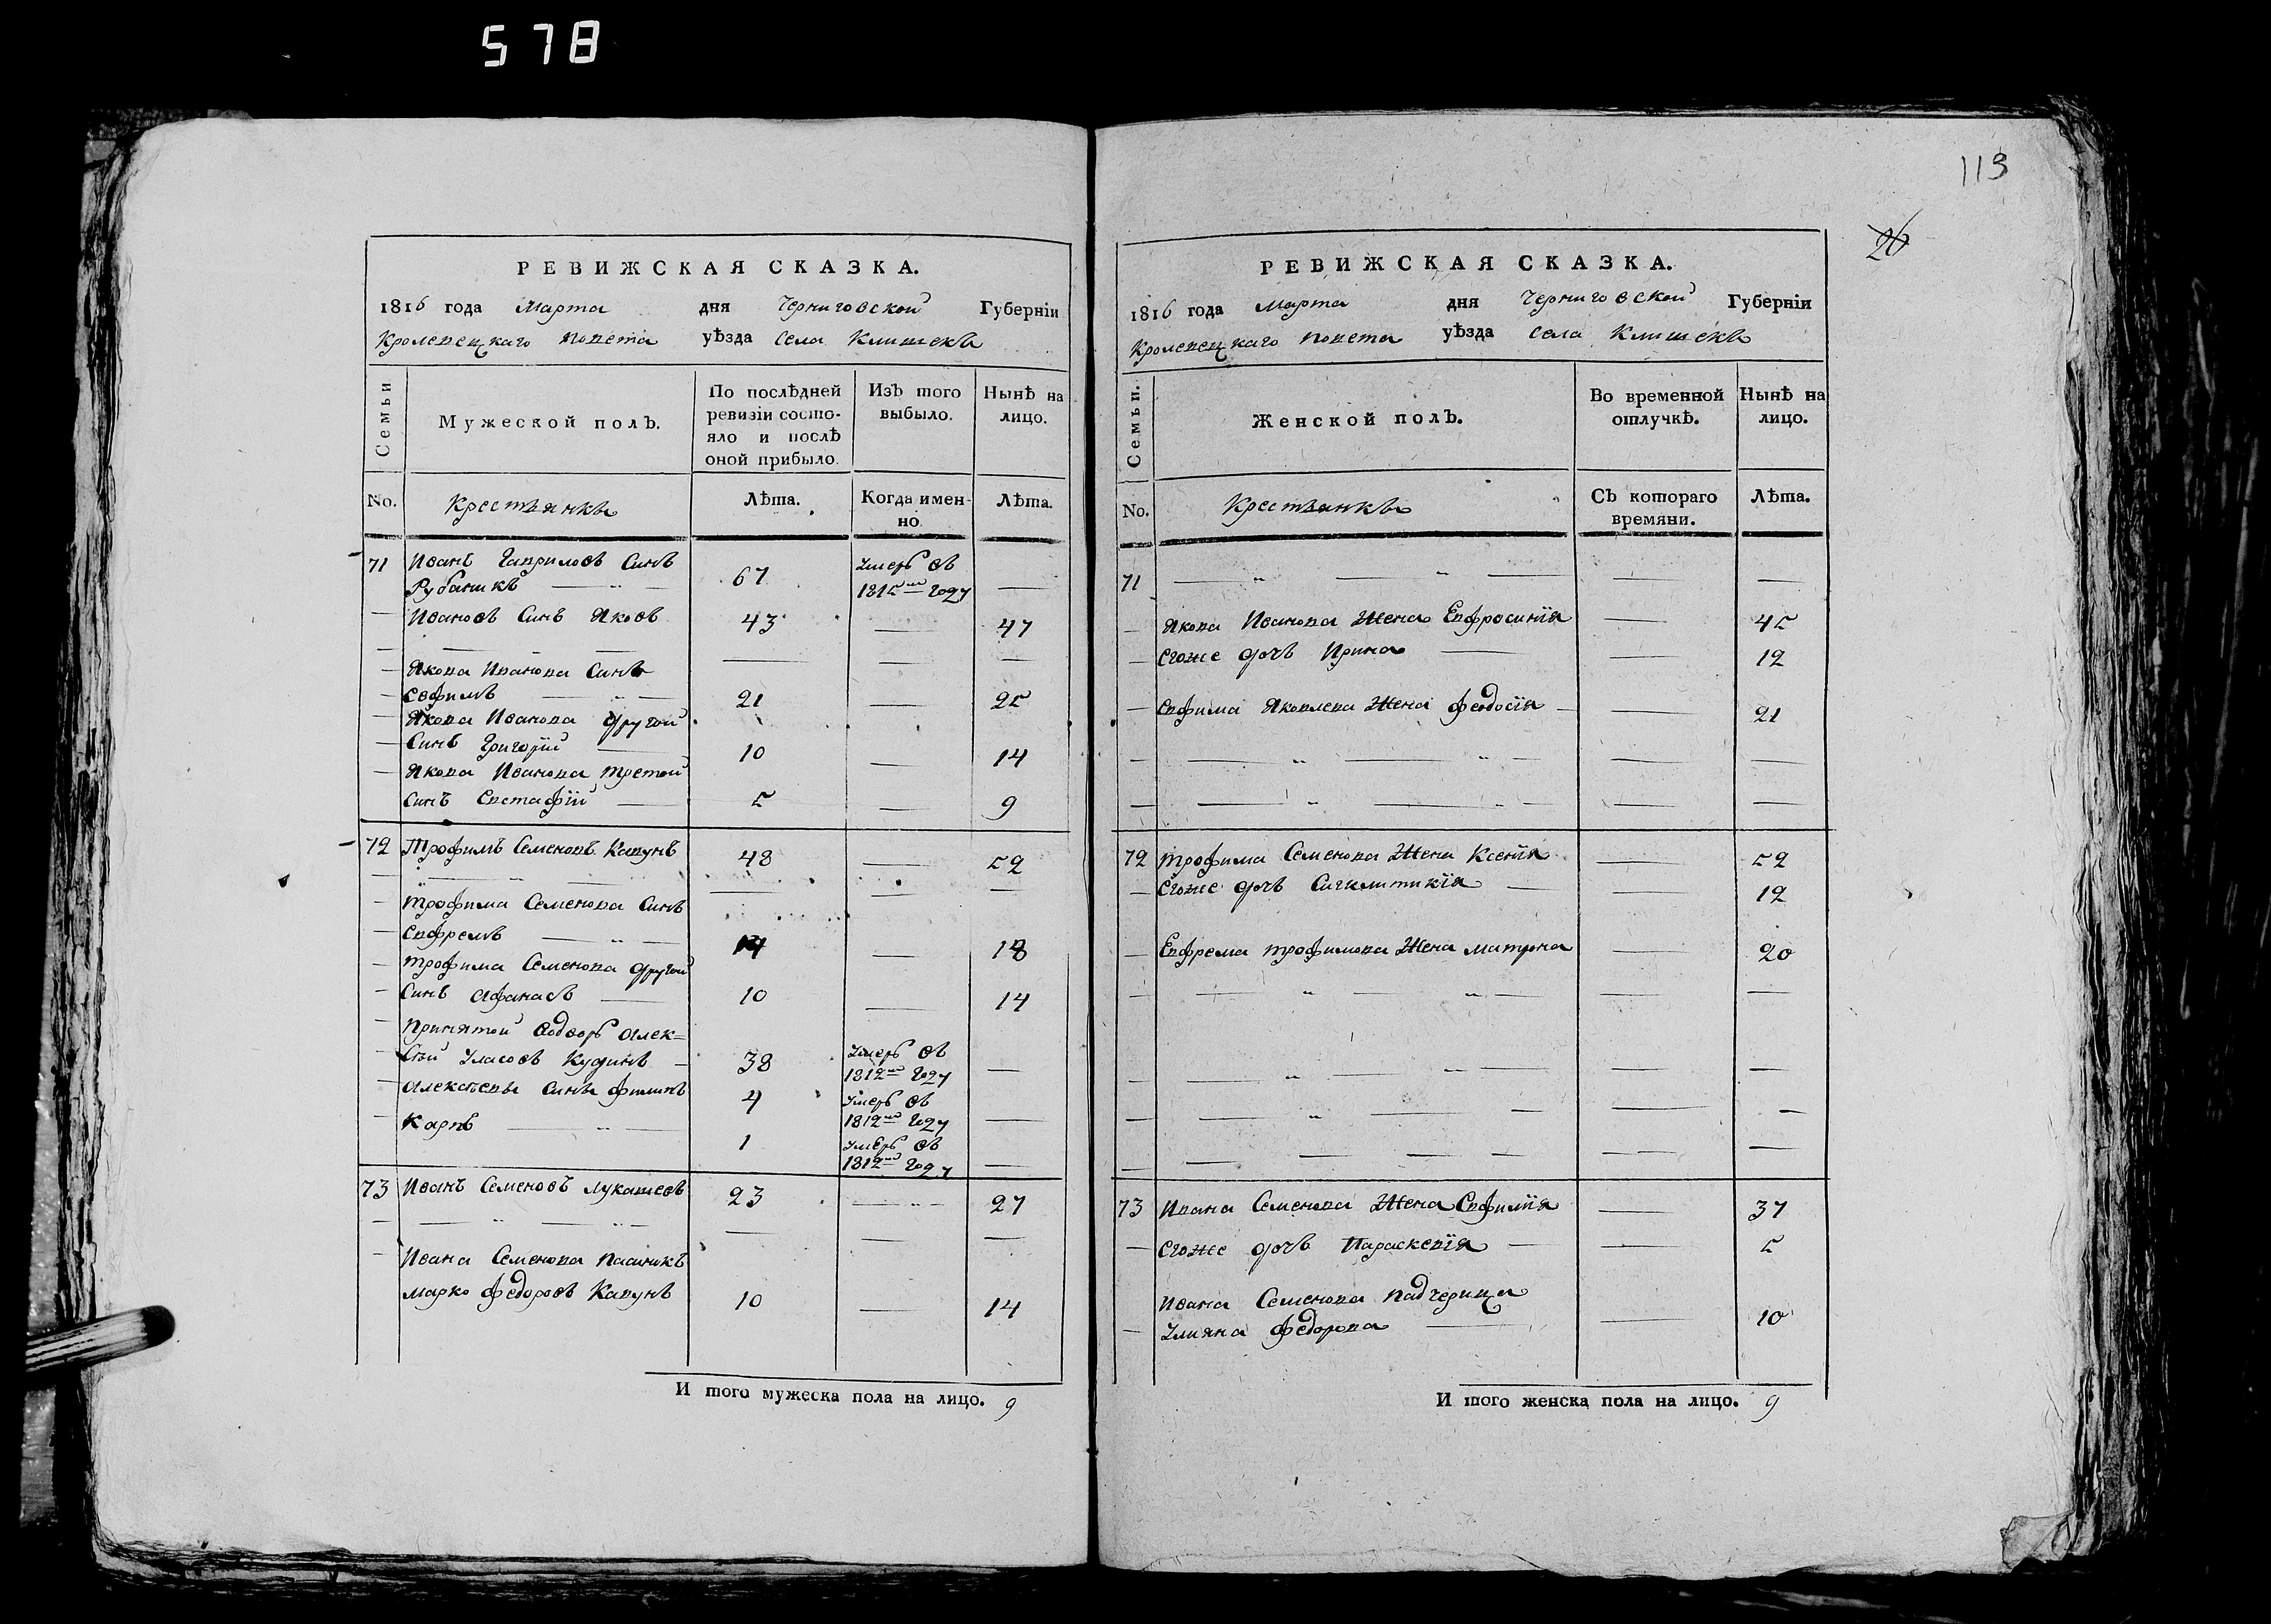 578
РЕВИЖСКАЯ СКАЗКА.
1816 года Марта дня Черниговской Губерніи
Кролевецкаго повета уѣзда Села Клишекъ
Семьи
Мужеской полъ.
По послѣдней ревизіи состояло и послѣ оной прибыло.
Изъ того выбыло.
Нынѣ на лицо.
No. Крестьянкъ Лѣта. Когда именно. Лѣта.
71 Иванъ Гаврилов Синъ 67 Умеръ въ
Рубаникъ 1815 году —
Ивановъ Синъ Яковъ 43 — 47
Якова Иванова Синъ
Евфимъ 21 — 25
Якова Иванова другой
Синъ Григорій 10 — 14
Якова Иванова третой
Синъ Евстафій 5 — 9
72 Трофимъ Семеновъ Капунъ 48 — 52
Трофима Семенова Синъ
Евфремъ 14 — 18
Трофима Семенова другой
Синъ Афанасъ 10 — 14
Принятой водворъ Алек=
сѣй Уласовъ Кудинъ 38 Умеръ въ 1812 году —
Алексѣевы Сины Филипъ 4 Умеръ въ 1812 году —
Карпъ 1 Умеръ въ 1812 году —
73 Иванъ Семеновъ Лукашовъ 23 — 27
Ивана Семенова пасинокъ
Марко Федоровъ Капунъ 10 — 14
И того мужеска пола на лицо. 9
113
26
РЕВИЖСКАЯ СКАЗКА.
1816 года Марта дня Черниговской Губерніи
Кролевецкаго повета уѣзда Села Клишекъ
Семьи.
Женской полъ.
Во временной отлучкѣ.
Нынѣ на лицо.
No. Крестьянкъ Съ котораго времяни. Лѣта.
71 — — —
Якова Иванова Жена Евфросинія — 45
Егоже дочъ Ирина — 12
Евфима Яковлева Жена Феодосія — 21
72 Трофима Семенова Жена Ксенія — 52
Егоже дочъ Сигклитикія — 12
Евфрема Трофимова Жена Матрона — 20
73 Ивана Семенова Жена Евфимія — 37
Егоже дочъ Параскевія — 5
Ивана Семенова падчерица
Улияна Федорова — 10
И того женска пола на лицо. 9